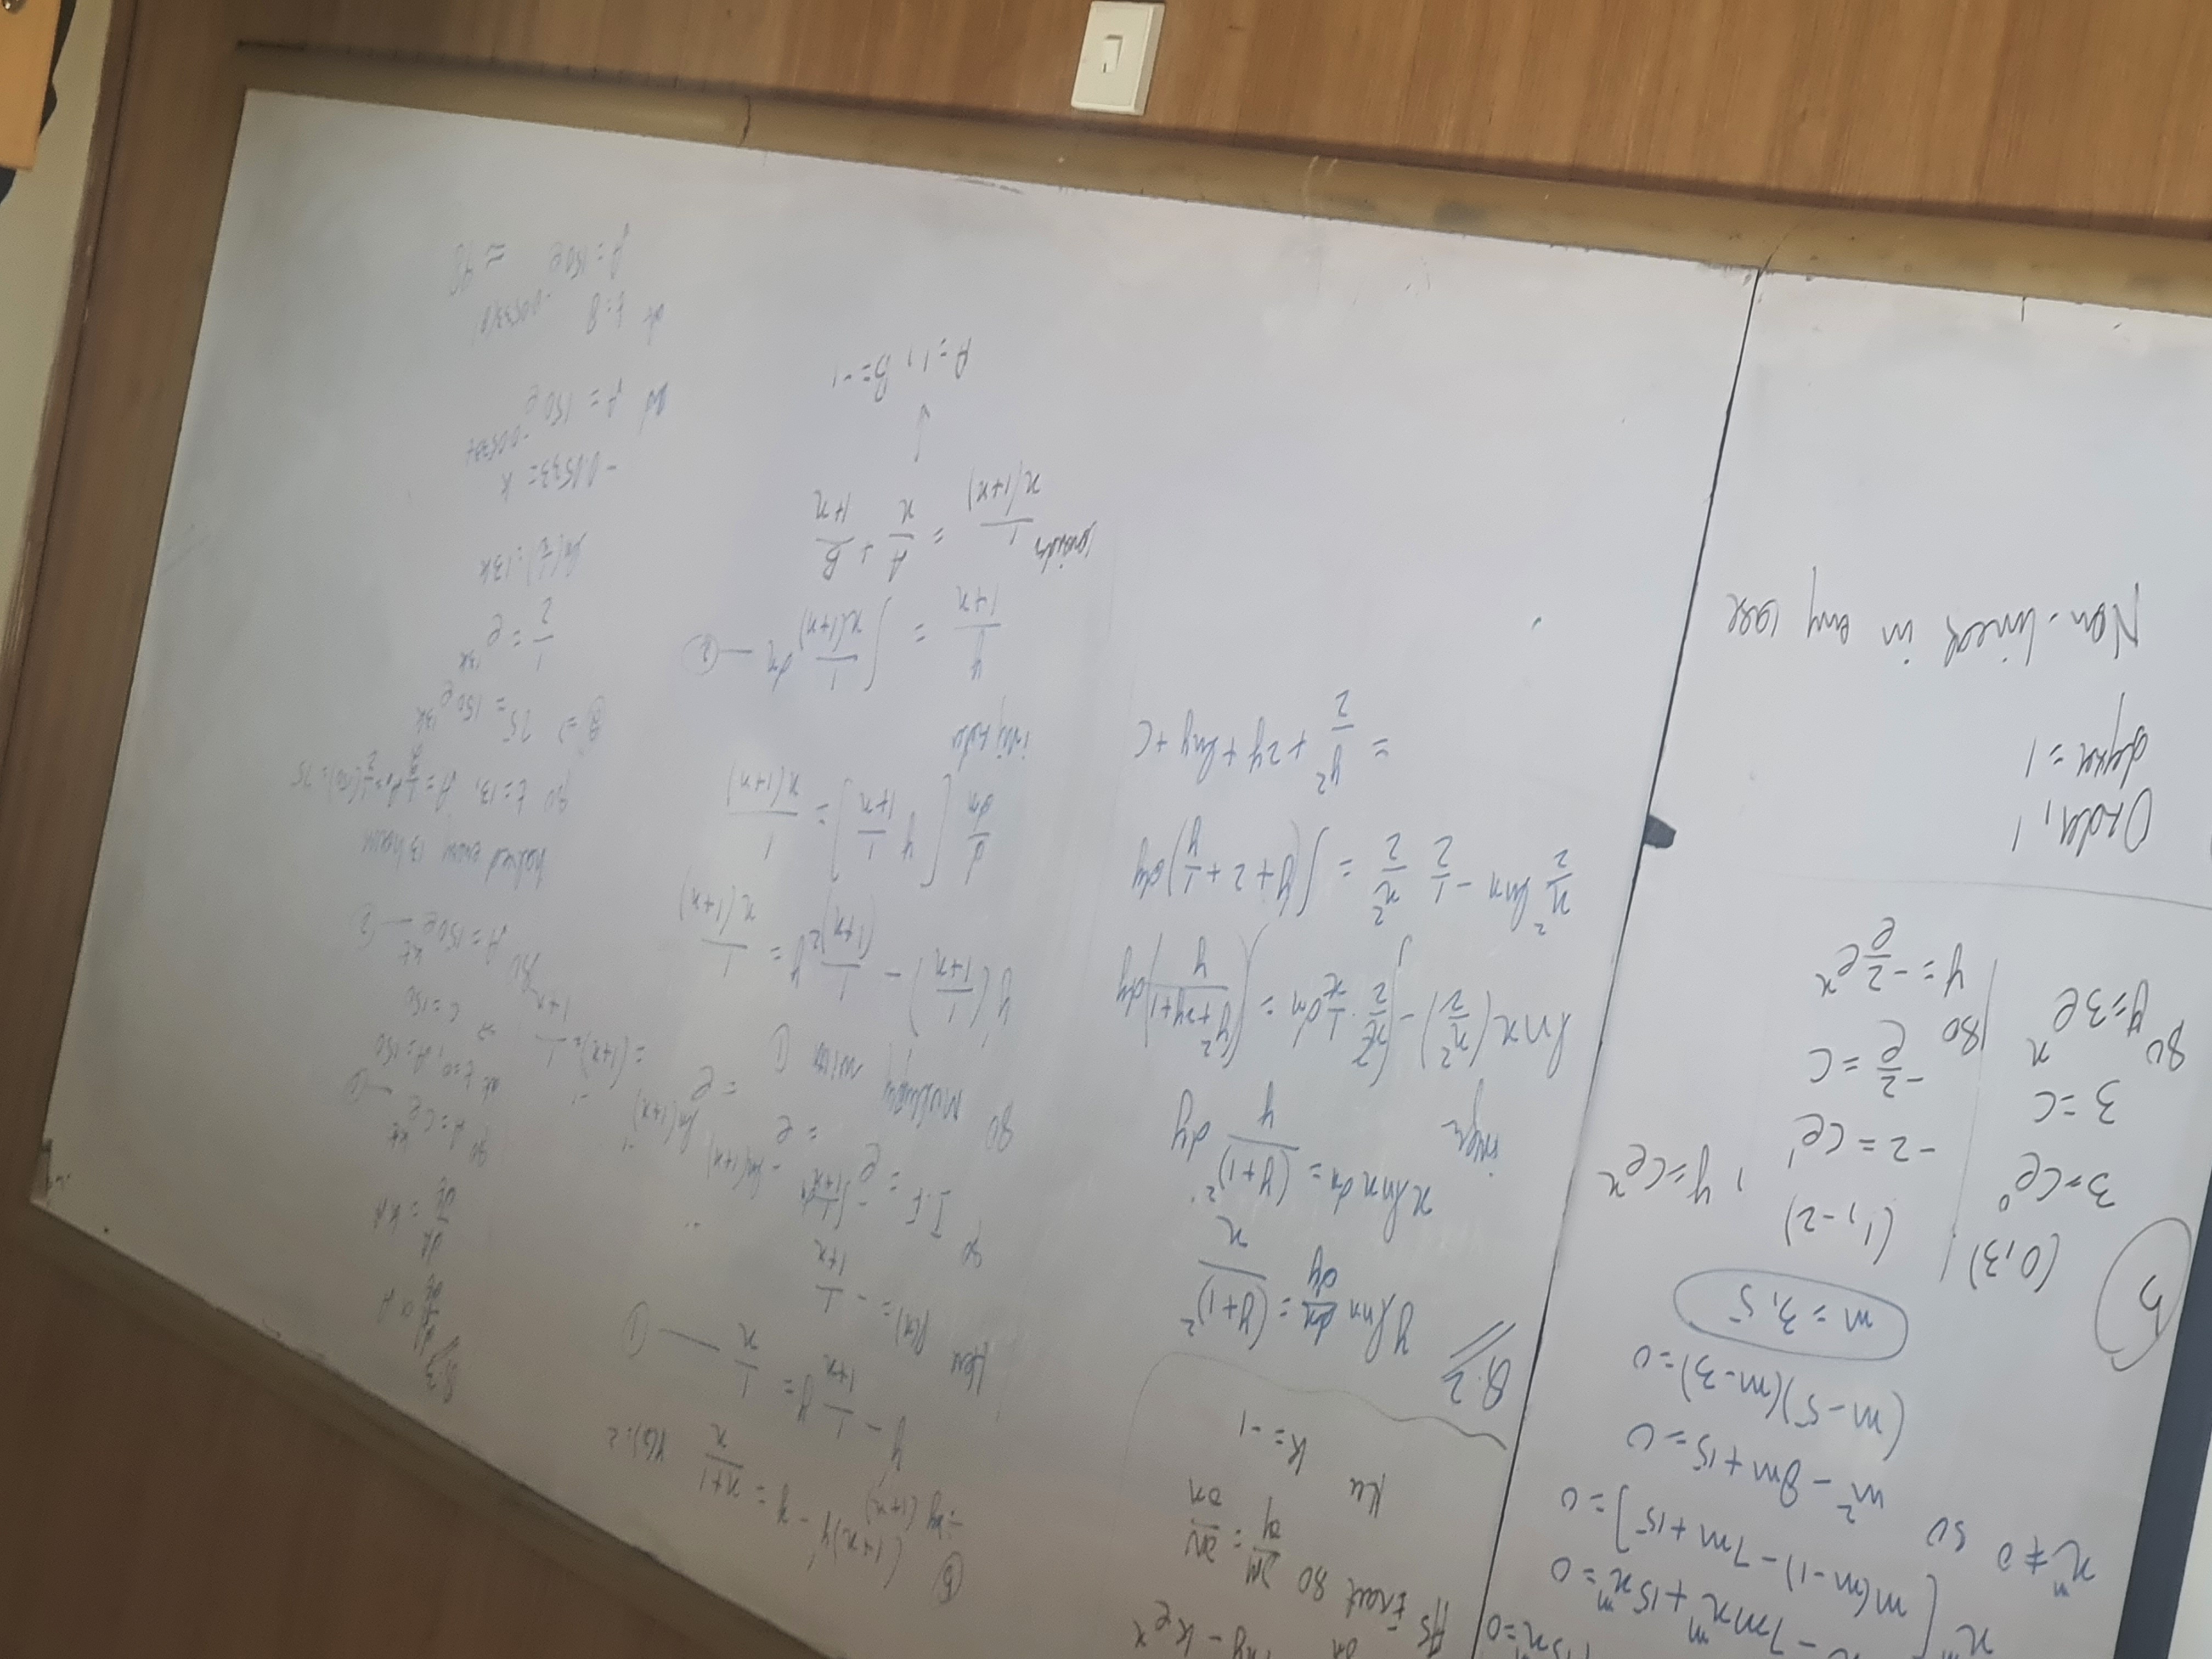 x^m - 7mx^m + 15x^m = 0
x^m [m(m-1) - 7m + 15] = 0
x^m ≠ 0 so
m² - 8m + 15 = 0
(m-5)(m-3) = 0
m = 3, 5
b
(0,3)
3 = Ce⁰
3 = C
so y = 3e^x
(1, -2) , y = Ce^x
-2 = Ce¹
-2/e = C
so
y = -2/e e^x
Order, 1
degree = 1
Non-linear in any case
- ke^x
As Exact so ∂M/∂y = ∂N/∂x
K = -1
Q.2
y ln x dx/dy = (y+1)²/x
x ln x dx = (y+1)²/y dy
ln x (x²/2) - ∫ x²/2 · 1/x dx = ∫ (y²+2y+1)/y dy
x²/2 ln x - 1/2 x²/2 = ∫ (y + 2 + 1/y) dy
= y²/2 + 2y + ln y + C
b (1+x)y' - y = (x+1)/x
÷ by (1+x)
y' - 1/(1+x) y = 1/x — ①
Here P(x) = - 1/(1+x)
so I.F = e^(-∫ 1/(1+x) dx)
= e^(-ln(1+x))
= e^(ln(1+x)^-1)
= (1+x)^-1 = 1/(1+x)
so Multiply with ①
y'(1/(1+x)) - 1/(1+x)² y = 1/(x(1+x))
d/dx [y 1/(1+x)] = 1/(x(1+x))
y/(1+x) = ∫ 1/(x(1+x)) dx — ②
consider 1/(x(1+x)) = A/x + B/(1+x)
↓
A = 1, B = -1
Q.3
dA/dt ∝ A
dA/dt = kA
so A = Ce^kt — ①
at t = 0, A = 150
⇒ C = 150
so A = 150e^kt — ②
halved every 13 hours
so t = 13, A = 1/2 A₀ = 1/2 (150) = 75
② ⇒ 75 = 150e^13k
1/2 = e^13k
ln(1/2) = 13k
-0.0533 = k
A = 150e^-0.0533t
at t = 8